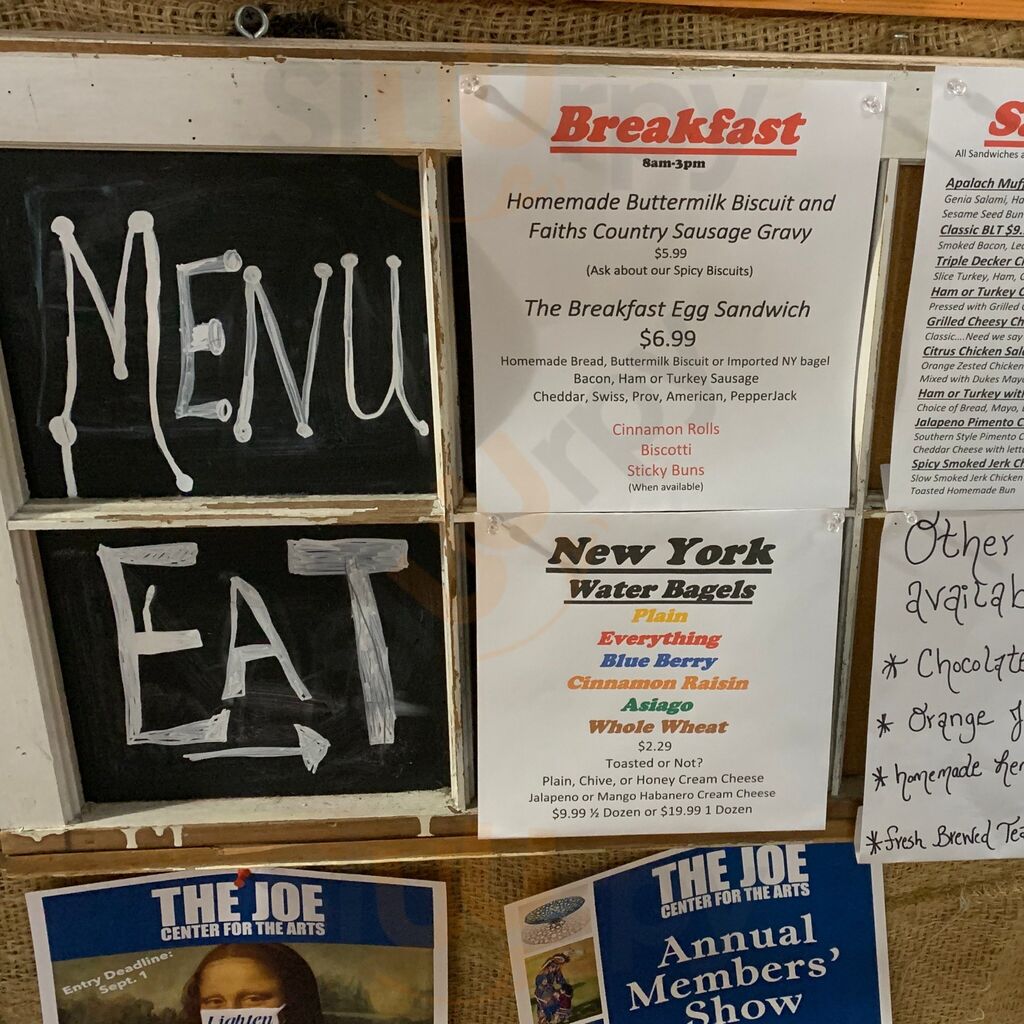 MENU
EAT
Breakfast
8am-3pm
Homemade Buttermilk Biscuit and
Faiths Country Sausage Gravy
$5.99
(Ask about our Spicy Biscuits)
The Breakfast Egg Sandwich
$6.99
Homemade Bread, Buttermilk Biscuit or Imported NY bagel
Bacon, Ham or Turkey Sausage
Cheddar, Swiss, Prov, American, PepperJack
Cinnamon Rolls
Biscotti
Sticky Buns
(When available)
New York
Water Bagels
Plain
Everything
Blue Berry
Cinnamon Raisin
Asiago
Whole Wheat
$2.29
Toasted or Not?
Plain, Chive, or Honey Cream Cheese
Jalapeno or Mango Habanero Cream Cheese
$9.99 ½ Dozen or $19.99 1 Dozen
All Sandwiches
Apalach
Genia Salami,
Sesame Seed
Classic BLT
Smoked Bacon,
Triple Decker
Slice Turkey, Ham,
Ham or Turkey
Pressed with Grilled
Grilled Cheesy
Classic....Need we say
Citrus Chicken
Orange Zested Chicken
Mixed with Dukes
Ham or Turkey
Choice of Bread, Mayo,
Jalapeno Pimento
Southern Style Pimento
Cheddar Cheese with
Spicy Smoked Jerk
Slow Smoked Jerk Chicken
Toasted Homemade Bun
Other
* Chocolate
* Orange
* homemade
* fresh Brewed
THE JOE
CENTER FOR THE ARTS
Entry Deadline:
Sept. 1
Lighten
THE JOE
CENTER FOR THE ARTS
Annual
Members'
Show